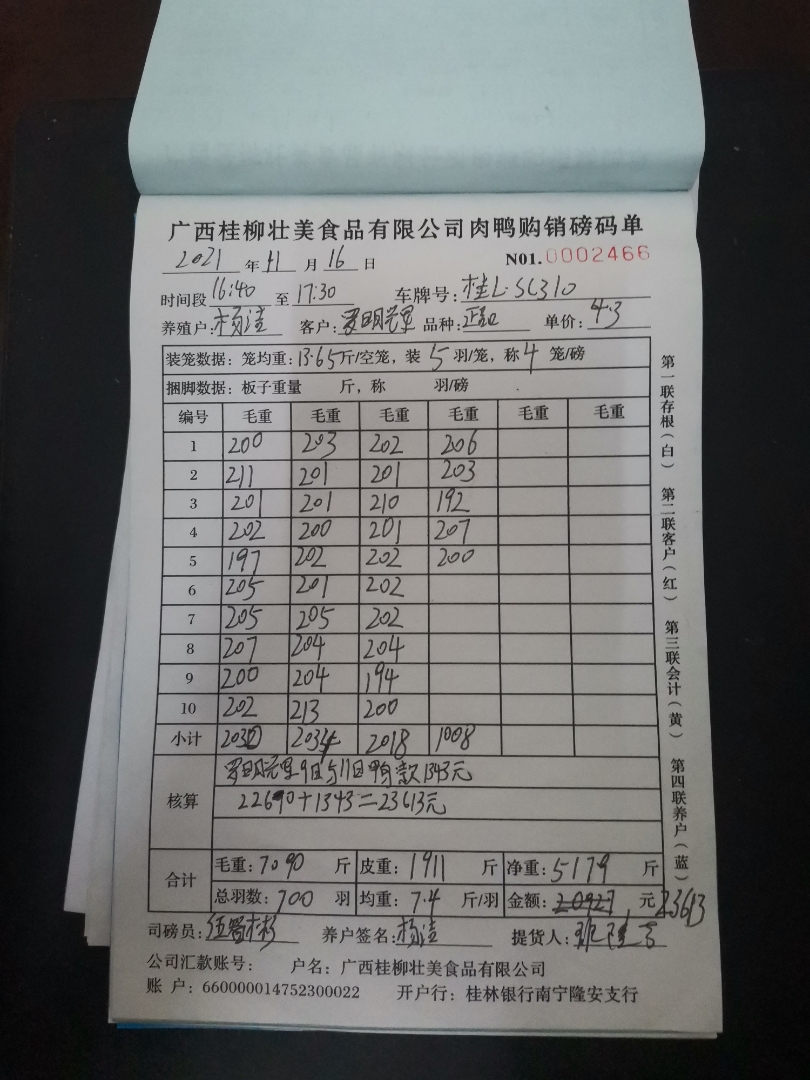 广西桂柳壮美食品有限公司肉鸭购销磅码单
2021 年 11 月 16 日 N01.0002466
时间段 16:40 至 17:30 车牌号: 桂L·SC310
养殖户: 杨洁 客户: 品种: 单价: 4.3
装笼数据: 笼均重: 13.65斤/空笼, 装 5 羽/笼, 称 4 笼/磅
捆脚数据: 板子重量 斤, 称 羽/磅
编号 毛重 毛重 毛重 毛重 毛重 毛重
1 200 203 202 206
2 211 201 201 203
3 201 201 210 192
4 202 200 201 207
5 197 202 202 200
6 205 201 202
7 205 205 202
8 207 204 204
9 200 204 194
10 202 213 200
小计 2030 2034 2018 1008
鸭款1343元
核算 +1343=23613元
合计 毛重: 7090 斤 皮重: 1911 斤 净重: 5179 斤
总羽数: 700 羽 均重: 7.4 斤/羽 金额: 20927 元 23613
司磅员: 养户签名: 杨洁 提货人:
公司汇款账号: 户名: 广西桂柳壮美食品有限公司
账 户: 660000014752300022 开户行: 桂林银行南宁隆安支行
第一联存根(白) 第二联客户(红) 第三联会计(黄) 第四联养户(蓝)